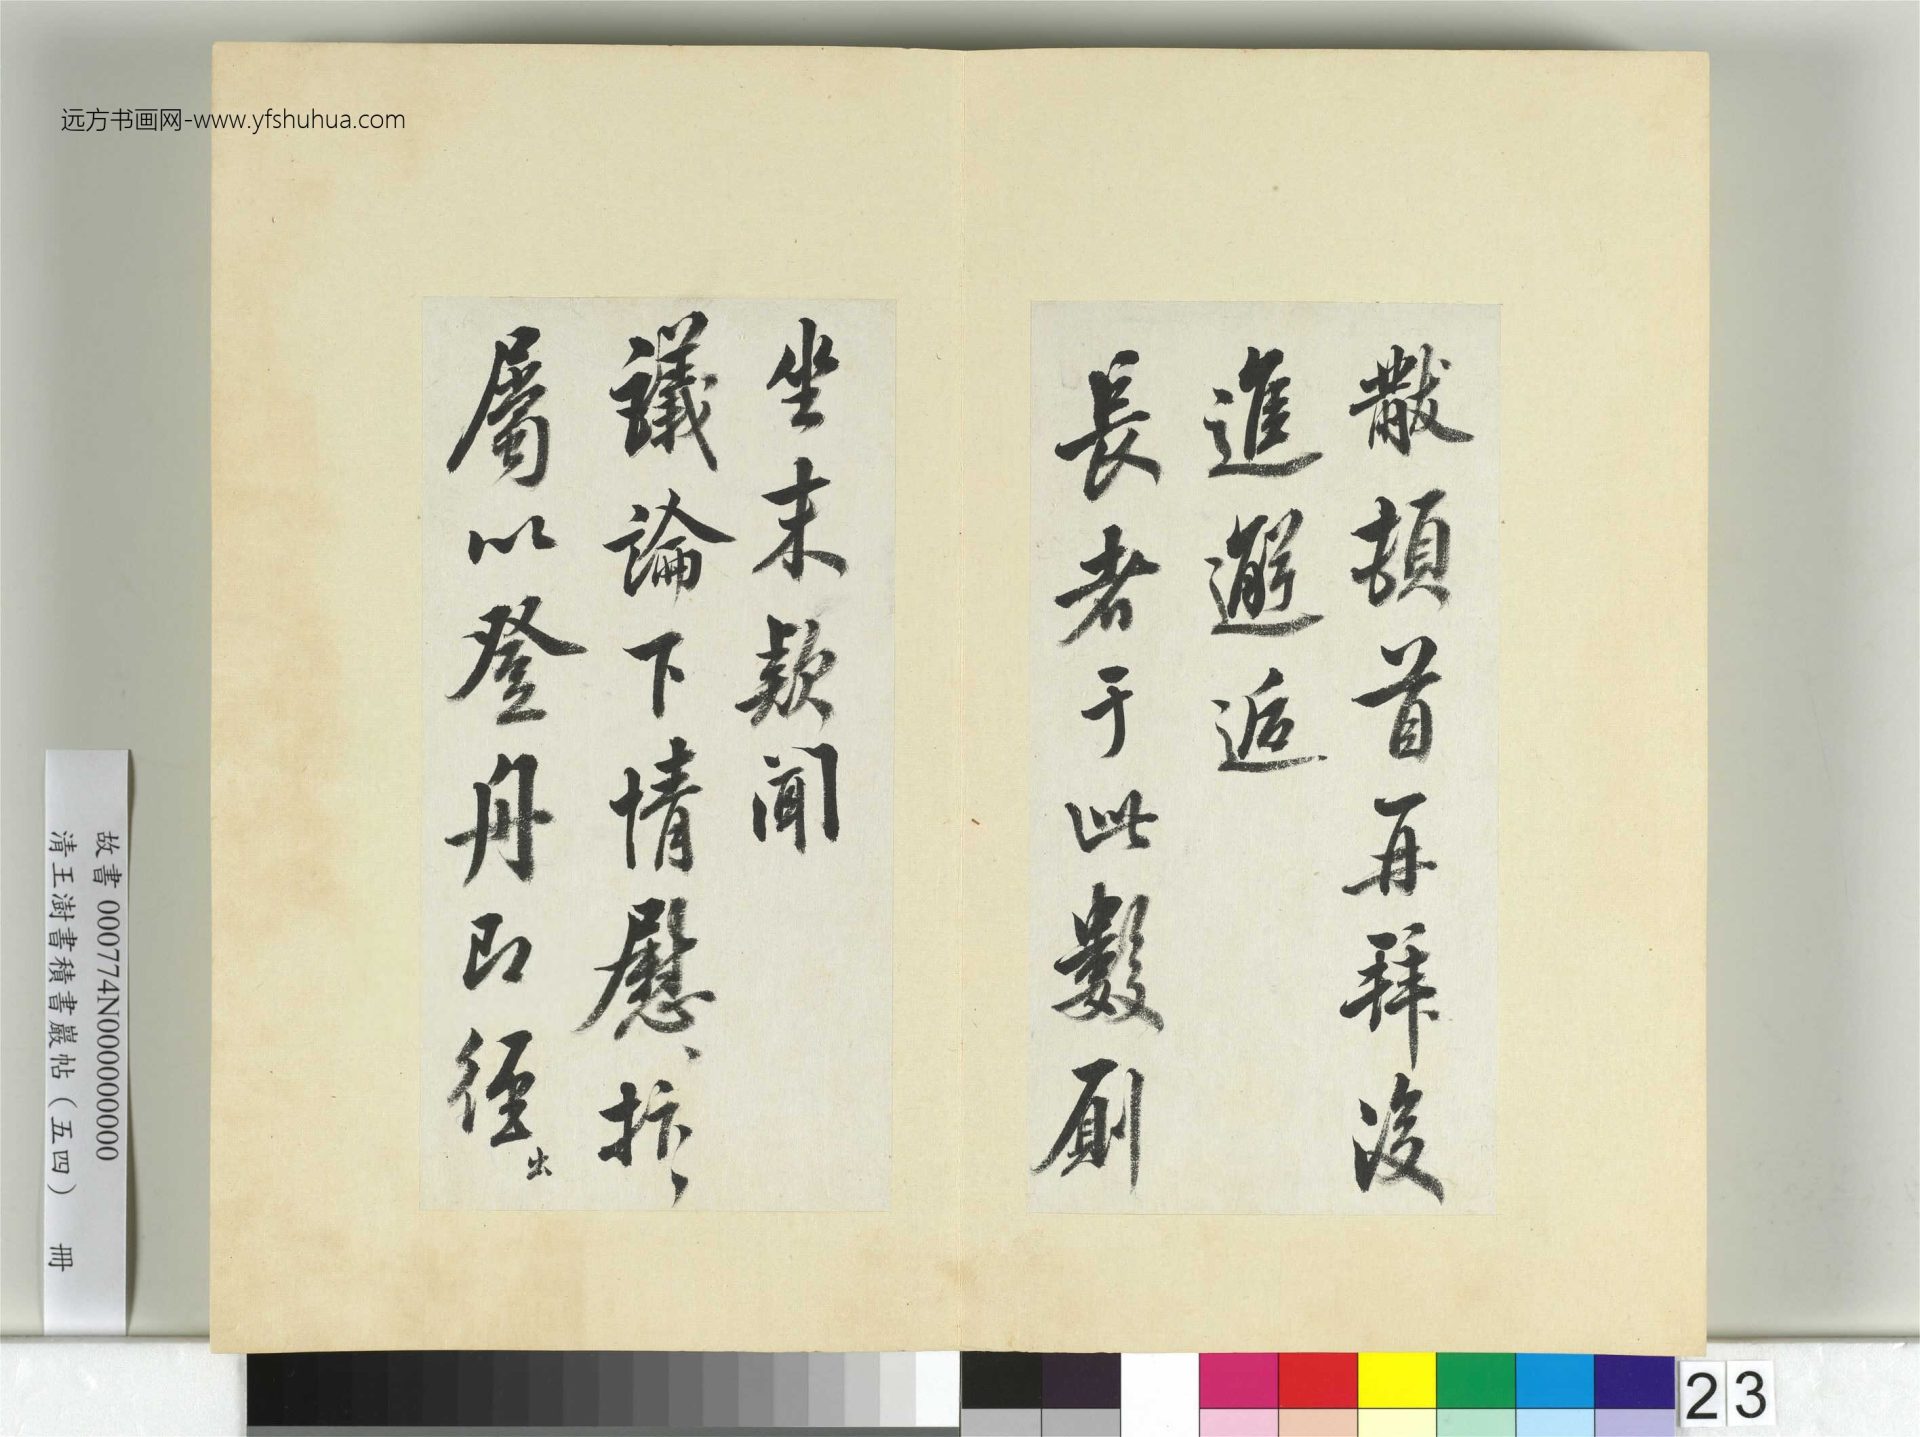 黻頓首再拜後
進邂逅
長者于此數廁
坐末款聞
議論下情慰、抃、
屬以登舟即徑
出
远方书画网-www.yfshuhua.com
故書 000774N000000000
清王澍書積書巖帖(五四) 冊
23